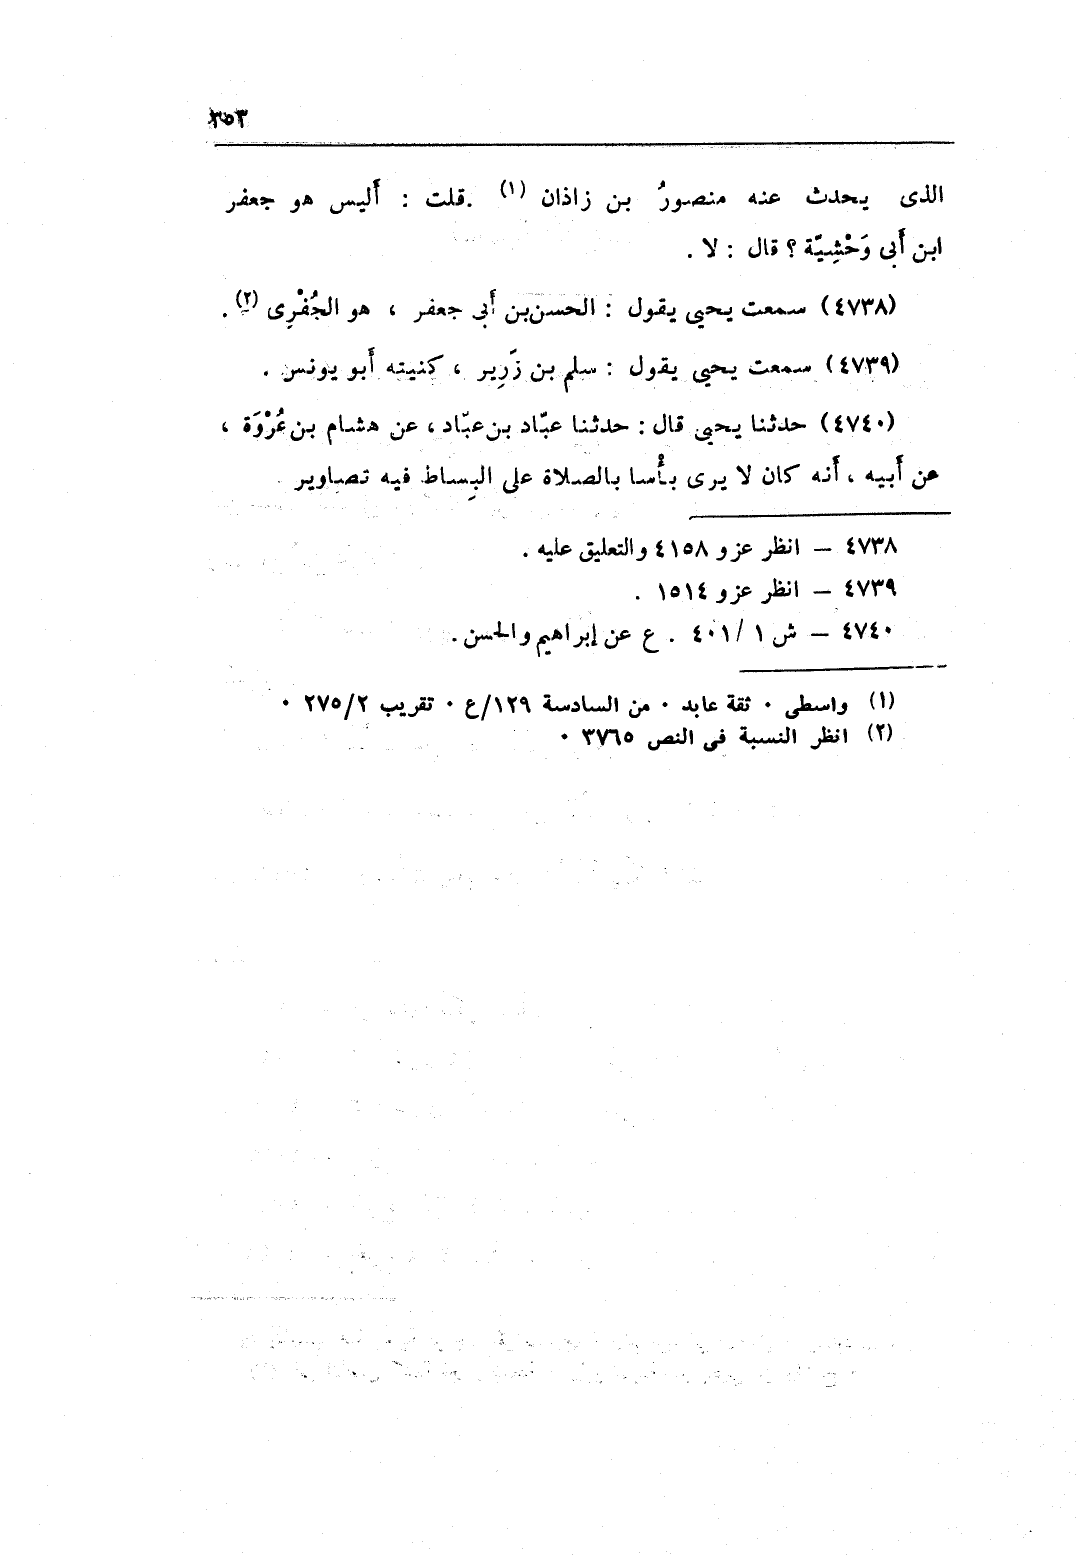 ٣٥٣
الذى يحدث عنه منصورُ بن زاذان (١) .قلت : أَليس هو جعفر
ابن أَبى وَحْشِيّة ؟ قال : لا .
(٤٧٣٨) سمعت يحيى يقول : الحسن بن أَبى جعفر ، هو الجُفْرِى (٢) .
(٤٧٣٩) سمعت يحيى يقول : سلم بن زَرِير ، كنيته أَبو يونس .
(٤٧٤٠) حدثنا يحيى قال : حدثنا عبّاد بن عبّاد ، عن هشام بن عُرْوَة ،
عن أَبيه ، أَنه كان لا يرى بأْسا بالصلاة على البِساط فيه تصاوير
٤٧٣٨ – انظر عزو ٤١٥٨ والتعليق عليه .
٤٧٣٩ – انظر عزو ١٥١٤ .
٤٧٤٠ – ش ١ /٤٠١ . ع عن إبراهيم والحسن .
(١) واسطى ٠ ثقة عابد ٠ من السادسة ١٢٩/ع ٠ تقريب ٢٧٥/٢ ٠
(٢) انظر النسبة فى النص ٣٧٦٥ ٠